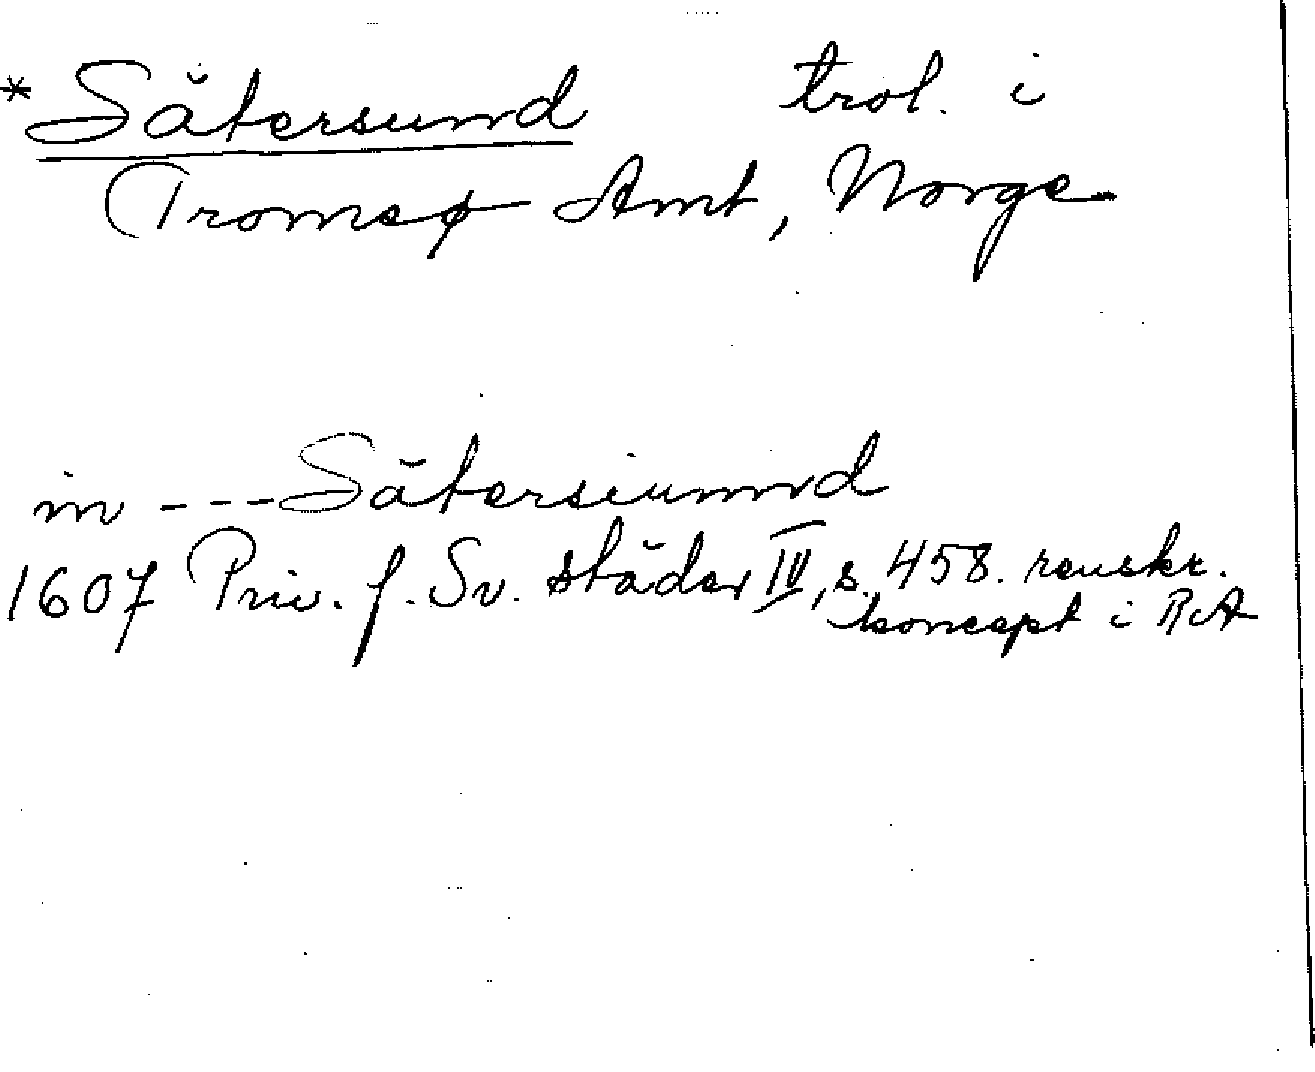 * Sätersund trol. i
Tromsø Amt, Norge
in --- Sätersiunnd
1607 Priv. f. Sv. städer IV, s. 458. renskr.
koncept i RA